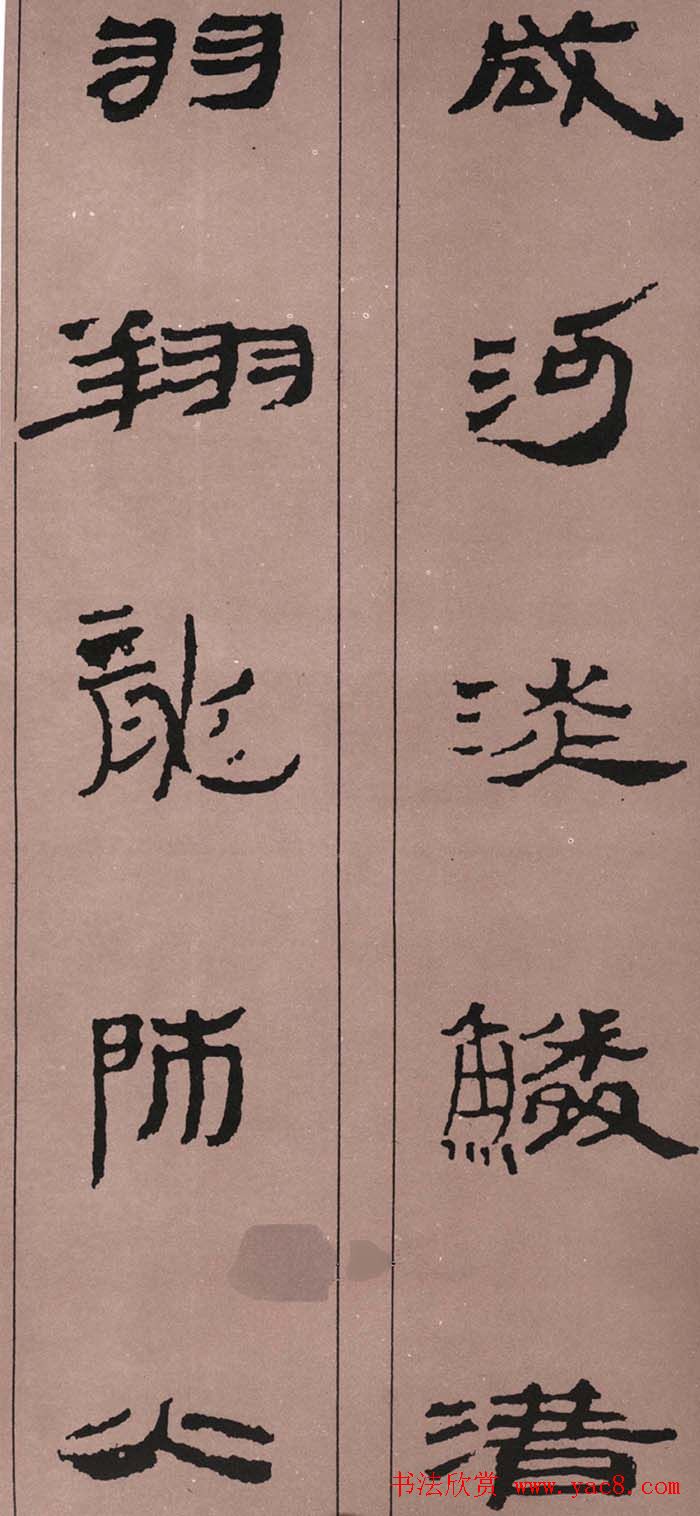 咸河淡鱗潜
羽翔龍師火
书法欣赏 www.yac8.com